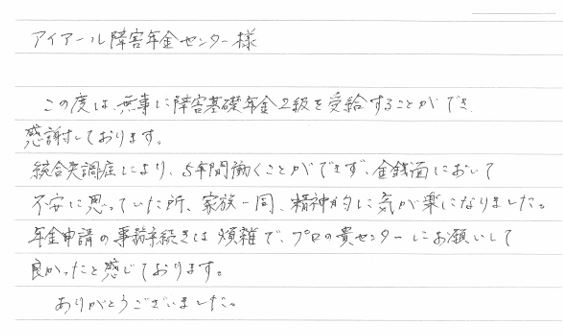 アイアール障害年金センター様
この度は、無事に障害基礎年金2級を受給することができ、
感謝しております。
統合失調症により、5年間働くことができず、金銭面において
不安に思っていた所、家族一同、精神的に気が楽になりました。
年金申請の事務手続きは煩雑で、プロの貴センターにお願いして
良かったと感じております。
ありがとうございました。